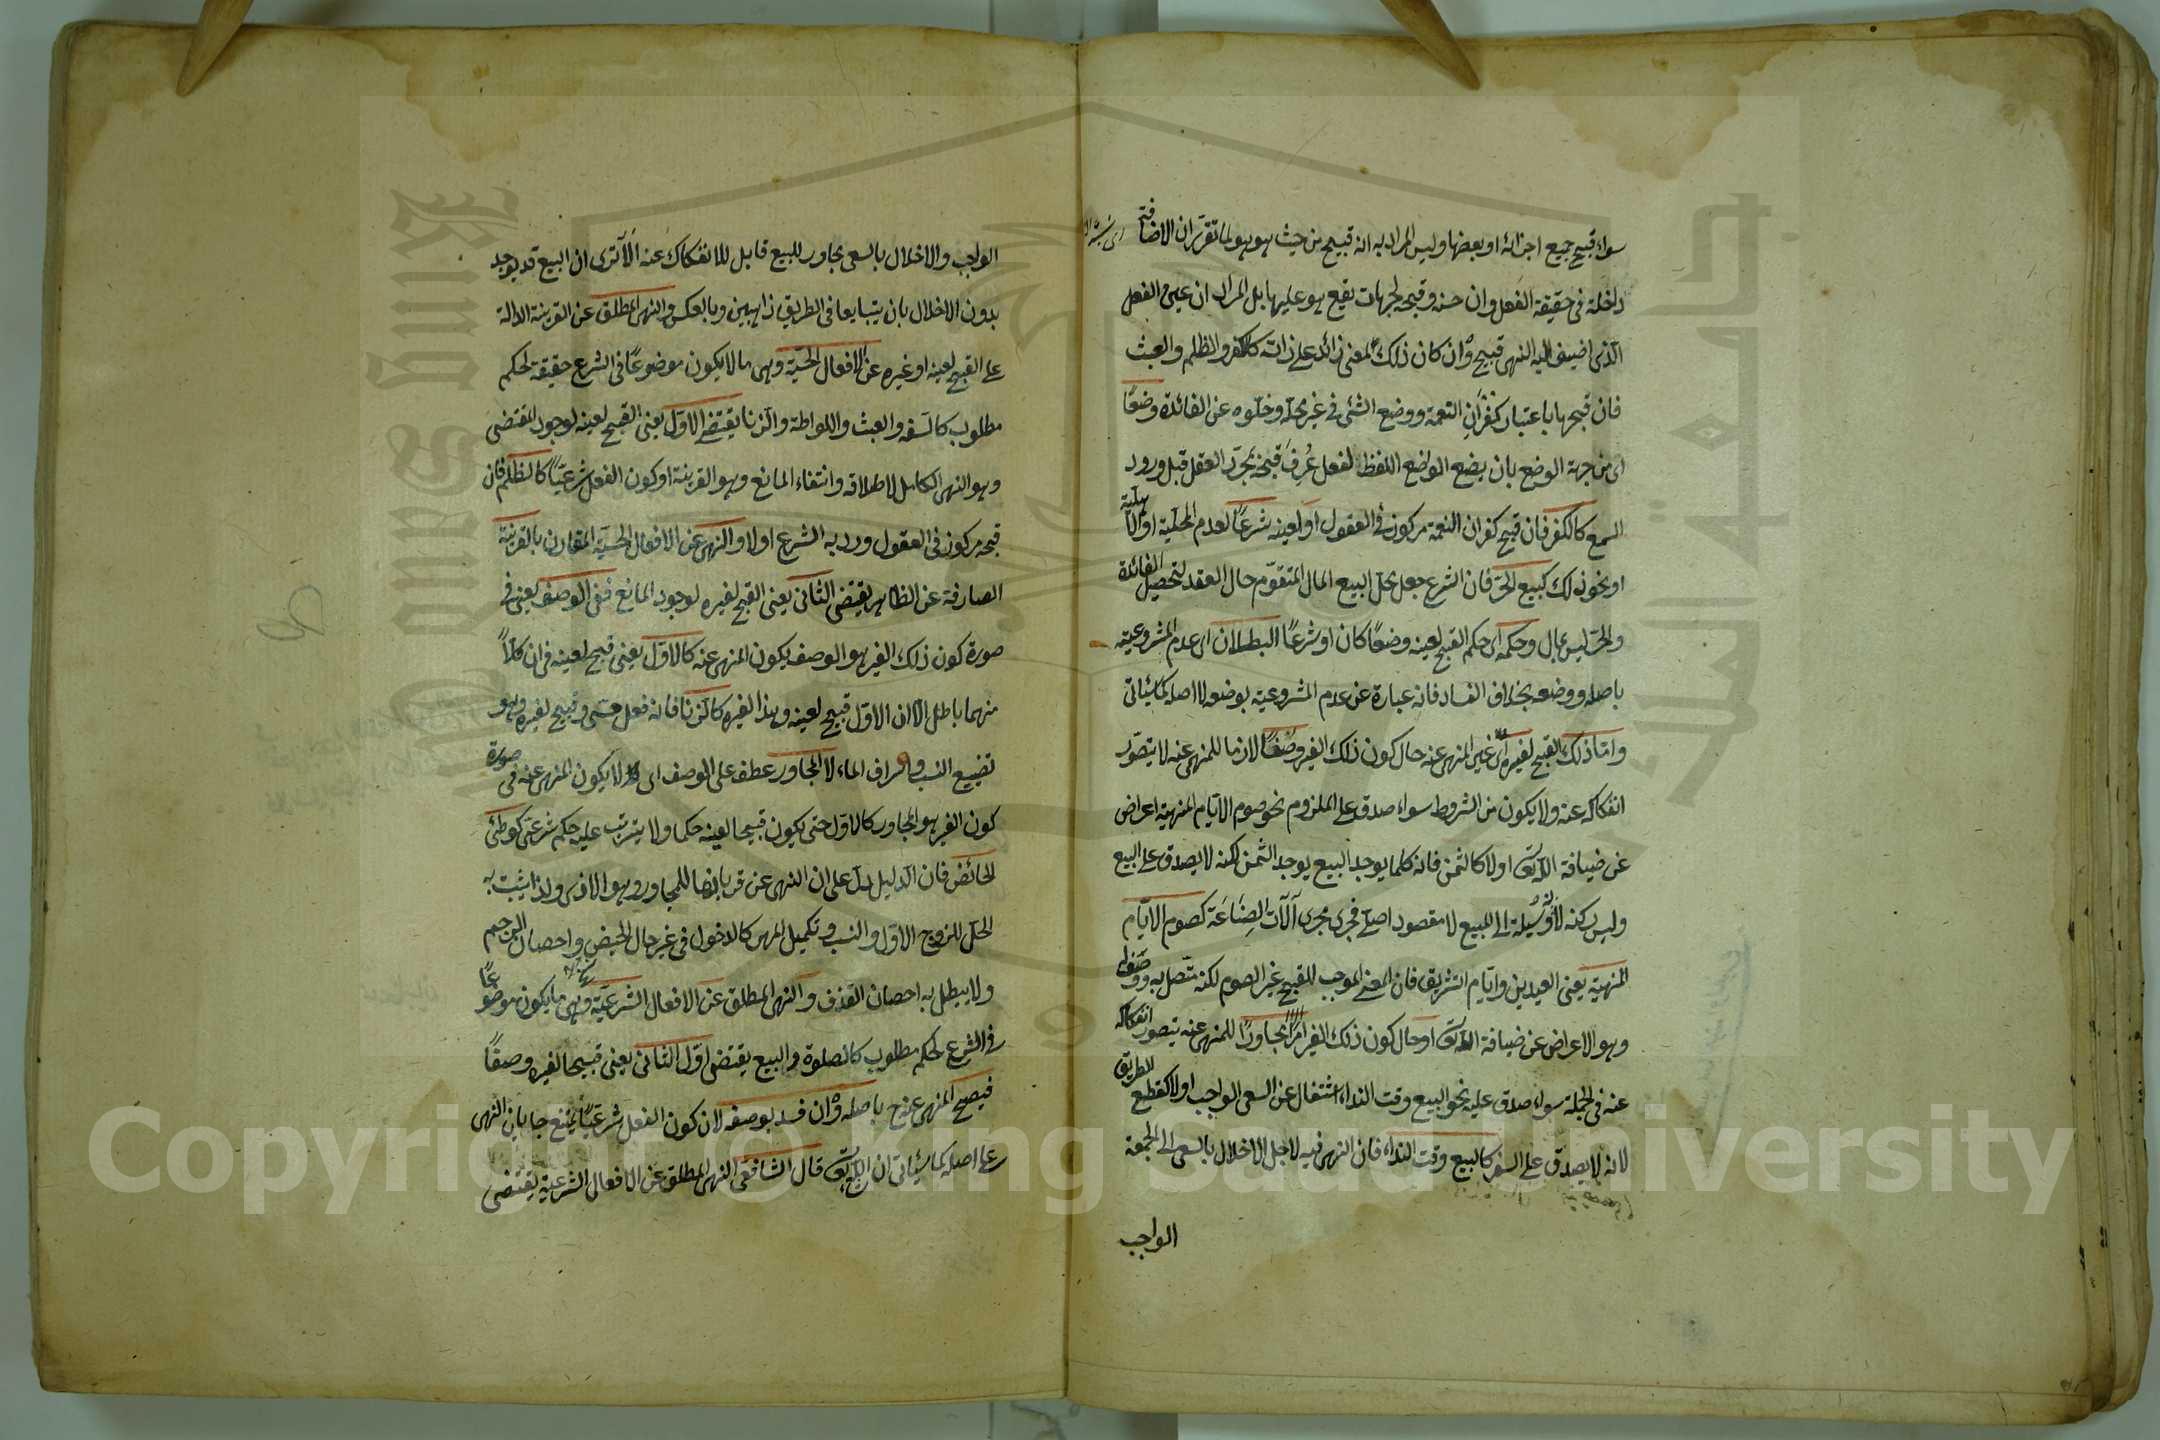 سواء قبح جميع اجزائه او بعضها وليس المراد به انه قبيح من حيث هو هو لما تقرر ان الاضافة
داخلة في حقيقة الفعل وان حسنه وقبحه لجهات يقع هو عليها بل المراد ان عين الفعل
الذى اضيف اليه النهى قبيح وان كان ذلك لمعنى زائد على ذاته كالكفر والظلم والعبث
فان قبحها باعتبار كفران النعمة ووضع الشئ في غير محله وخلوه عن الفائدة وضعًا
اى من جهة الوضع بان يضع الواضع اللفظ لفعل عُرِفَ قبحه بمجرد العقل قبل ورود
السمع كالكفر فان قبح كفران النعمة مركوز في العقول او لعينه شرعًا لعدم المحلية او الاهلية
او نحو ذلك كبيع الحر فان الشرع جعل محل البيع المال المتقوم حال العقد لتحصيل الفائدة
والحر ليس بمال وحكمه اى حكم القبح لعينه وضعًا كان او شرعًا البطلان اى عدم المشروعية
باصله ووصفه بخلاف الفساد فانه عبارة عن عدم المشروعية بوصفه لا اصله كما سيأتى
واما ذلك القبح لغيره اى غير المنهى عنه حال كون ذلك الغير وصفًا لازما للمنهى عنه لا يتصور
انفكاكه عنه ولا يكون من الشروط سواء صدق على الملزوم نحو صوم الايام المنهية اعراض
عن ضيافة الله تعالى او لا كالثمن فانه كلما يوجد البيع يوجد الثمن لكنه لا يصدق على البيع
وليس ركنه لانه وسيلة الى المبيع لا مقصود اصلى فجرى مجرى آلات الصناعة كصوم الايام
المنهية يعنى العيدين وايام التشريق فان المعنى الموجب للقبح غير الصوم لكنه متصل به وصفا
وهو الاعراض عن ضيافة الله تعالى او حال كون ذلك الغير امرًا مجاورًا للمنهى عنه يتصور انفكاكه
عنه في الجملة سواء صدق عليه نحو البيع وقت النداء اشتغال عن السعى الواجب او لا كقطع الطريق
لانه لا يصدق على السفر كالبيع وقت النداء فان النهى فيه لاجل الاخلال بالسعى الى الجمعة
الواجب
الواجب والاخلال بالسعى مجاور للبيع قابل للانفكاك عنه ألا ترى ان البيع قد يوجد
بدون الاخلال بان يتبايعا في الطريق ذاهبين وبالعكس والنهى المطلق عن القرينة الدالة
على القبح لعينه او غيره عن الافعال الحسية وهى ما لا يكون موضوعًا في الشرع حقيقة لحكم
مطلوب كالسفه والعبث واللواطة والزنا يقتضى الاول يعنى القبح لعينه لوجود المقتضى
وهو النهى الكامل لاطلاقه وانتفاء المانع وهو القرينة او كون الفعل شرعيًا كالظلم فان
قبحه مركوز في العقول ورد به الشرع اولا والنهى عن الافعال الحسية المقارن بالقرينة
الصارفة عن الظاهر يقتضى الثانى يعنى القبح لغيره لوجود المانع ففى الوصف يعنى في
صورة كون ذلك الغير هو الوصف يكون المنهى عنه كالاول يعنى قبح لعينه في ان كلاً
منهما باطل الا ان الاول قبيح لعينه وهذا لغيره كالزنا فانه فعل حسى وقبيح لغيره وهو
تضييع النسب واسراف الماء لا المجاور عطف على الوصف اى لا يكون المنهى عنه في صورة
كون الغير هو المجاور كالاول حتى يكون قبيحا لعينه حكما ولا يترتب عليه حكم شرعى كوطئ
الحائض فان الدليل دل على ان النهى عن قربانها للمجاور وهو الاذى ولذا يثبت به
الحل للزوج الاول والنسب وتكميل المهر كالدخول في غير حال الحيض واحصان الرجم
ولا يبطل به احصان القذف والنهى المطلق عن الافعال الشرعية وهى ما يكون موضوعًا
في الشرع لحكم مطلوب كالصلوة والبيع يقتضى اول الثانى يعنى قبيحا لغيره وصفًا
فيصح المنهى عنه باصله وان فسد بوصفه لان كون الفعل شرعيًا يمنع جريان النهى
على اصله كما سيأتى ان شاء الله تعالى قال الشافعى النهى المطلق عن الافعال الشرعية يقتضى
Copyright © King Saud University